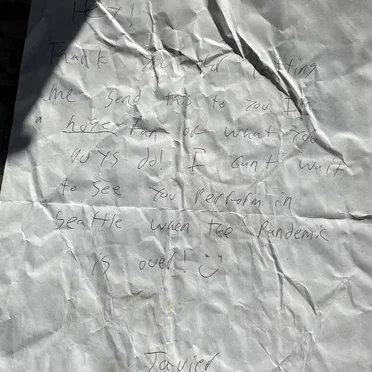 Hey!
Thank you for letting
me send this to you I'm
a huge fan of what you
guys do! I can't wait
to see you perform in
Seattle when the Pandemic
is over! :)
Javier